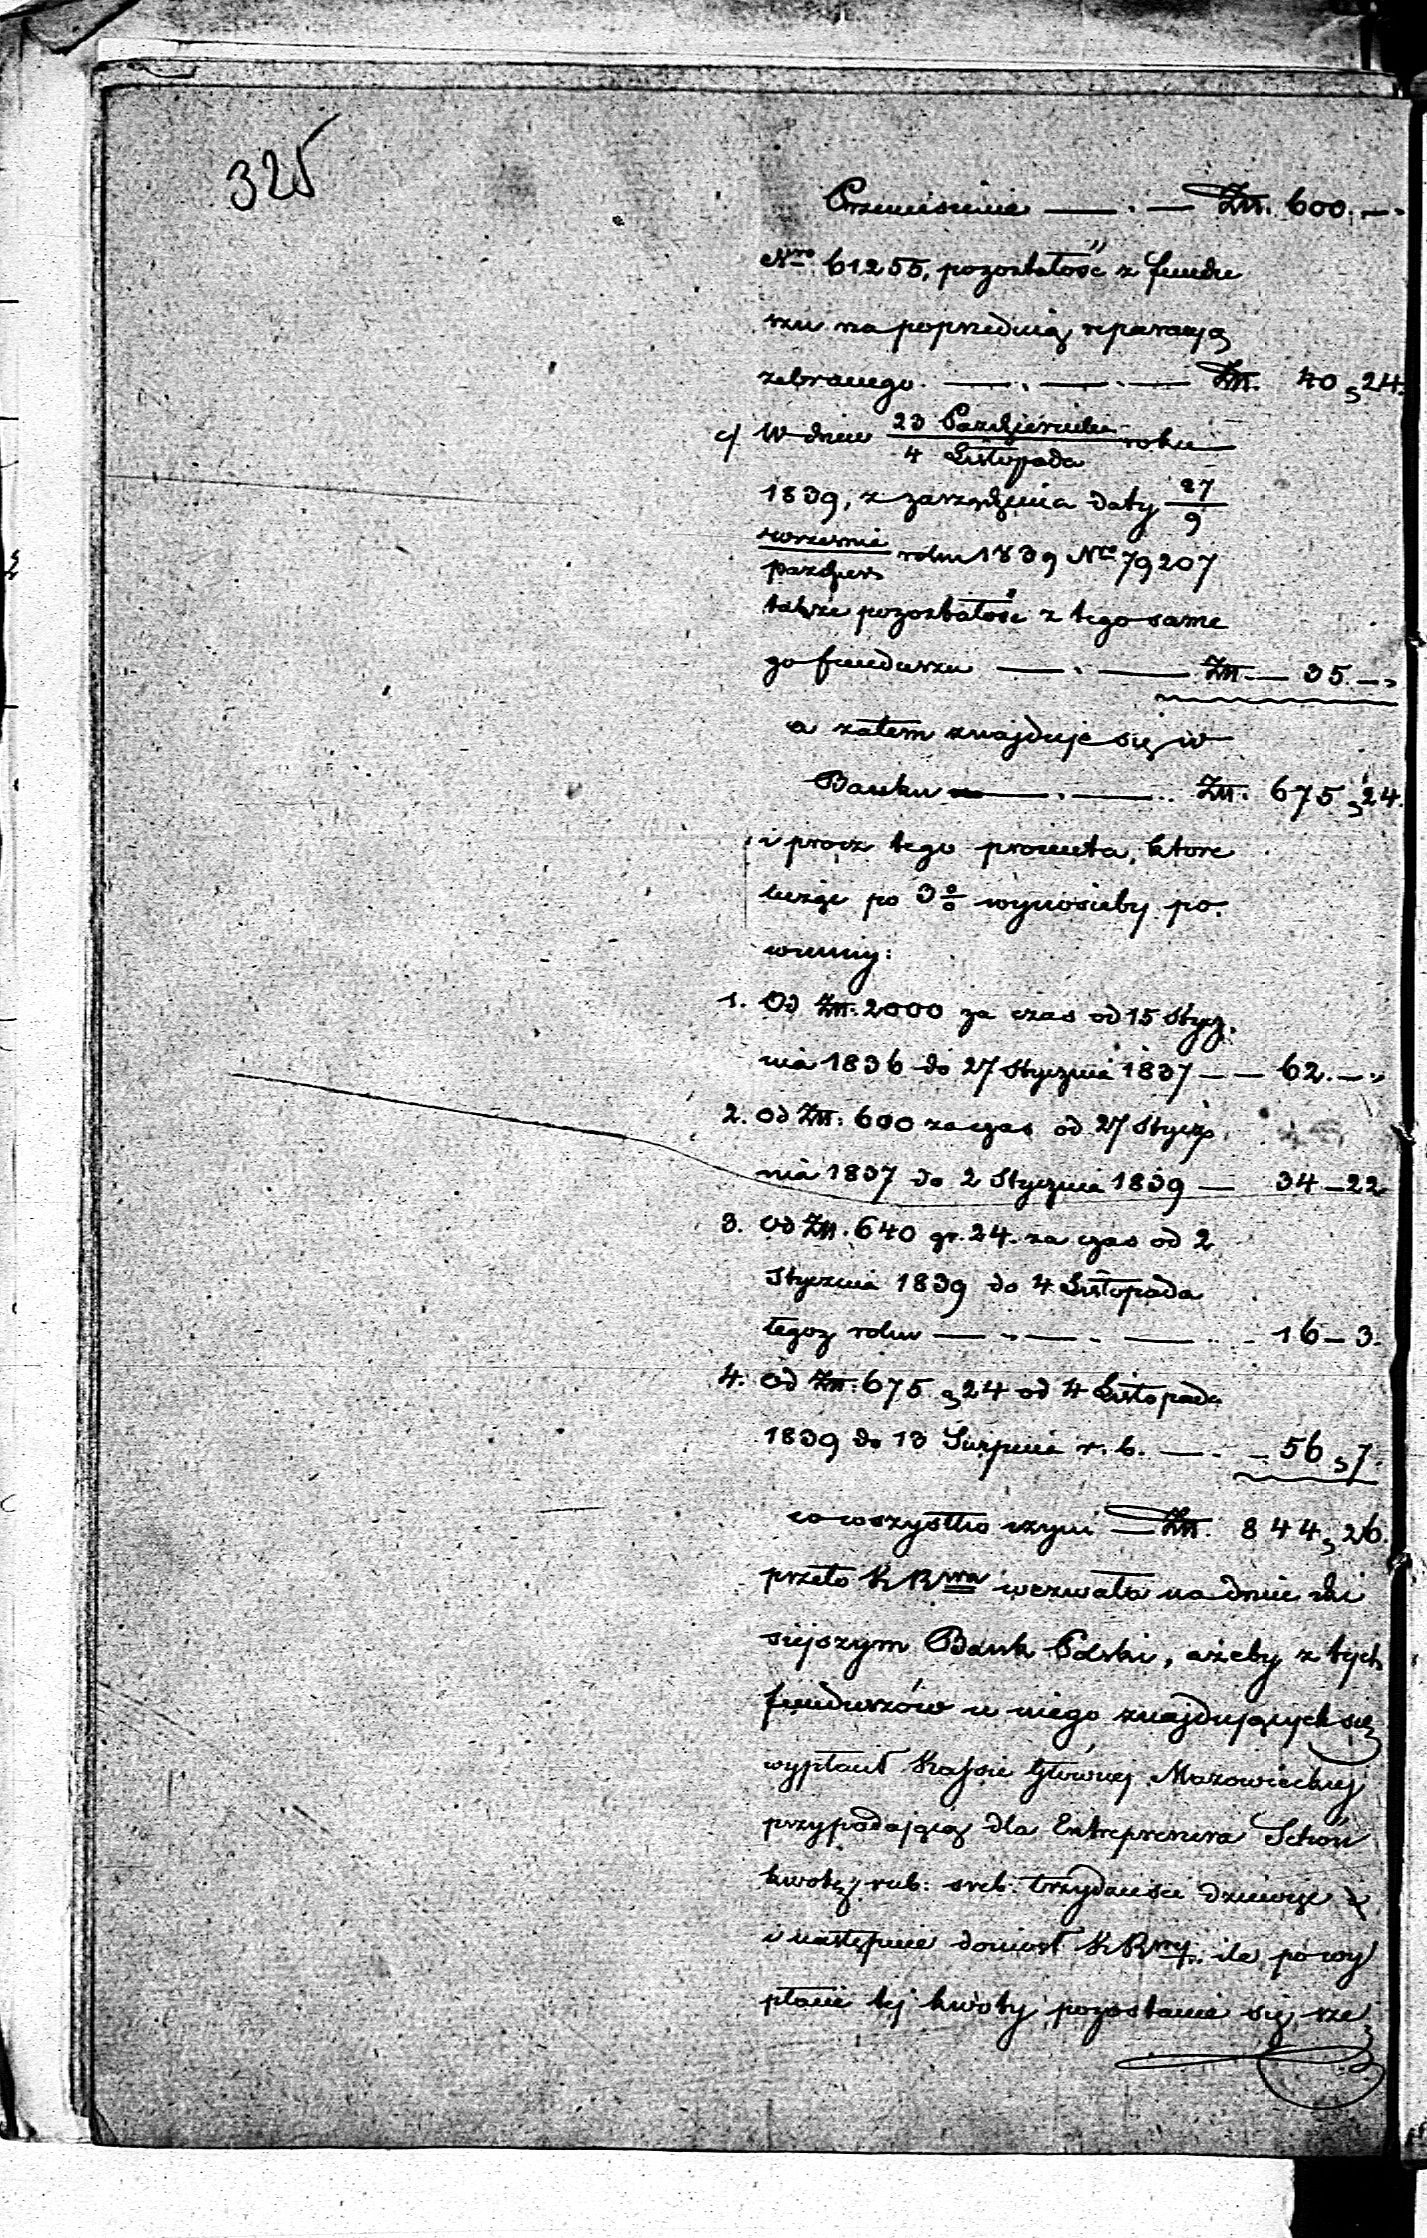 325
Przeniesienie — . — Zł. 600. — „
Nro 61255, pozostałość z fundu
szu na poprzednią reparacyą
zebranego. — . — . — Zł. 40 „ 24.
c/ W dniu 23 Października / 4 Listopada roku
1839, z zarządzenia daty 27 / 9
września / paździer roku 1839 Nro 79207
także pozostałość z tego same
go funduszu — . — Zł. — 35. — „
a zatem znajduje się w
Banku — . — .. Zł. 675 „ 24.
i procz tego procenta, ktore
licząc po 3 % wynosićby po-
winny:
1. Od Zł. 2000 za czas od 15 Stycz-
nia 1836 do 27 Stycznia 1837 — — 62. — „
2. Od Zł. 600 za czas od 27 Stycz
nia 1837 do 2 Stycznia 1839 — 34 — 22
3. Od Zł. 640 gr. 24. za czas od 2
Stycznia 1839 do 4 Listopada
tegoż roku — . — . — 16 — 3.
4. Od Zł. 675 „ 24 od 4 Listopada
1839 do 13 Sierpnia r. b. — . — 56 „ 7.
co wszystko czyni — Zł. 844 „ 26.
przeto K R wa wezwała na dniu dzi
siejszym Bank Polski, ażeby z tych
funduszów u niego znajdujących się
wypłacił Kassie Głównej Mazowieckiej
przypadającą dla Entreprenera Schön
kwotę rub: sreb: trzydzieści dziewięć
i następnie doniosł K R wej, ile po wy
płacie tej kwoty, pozostanie się